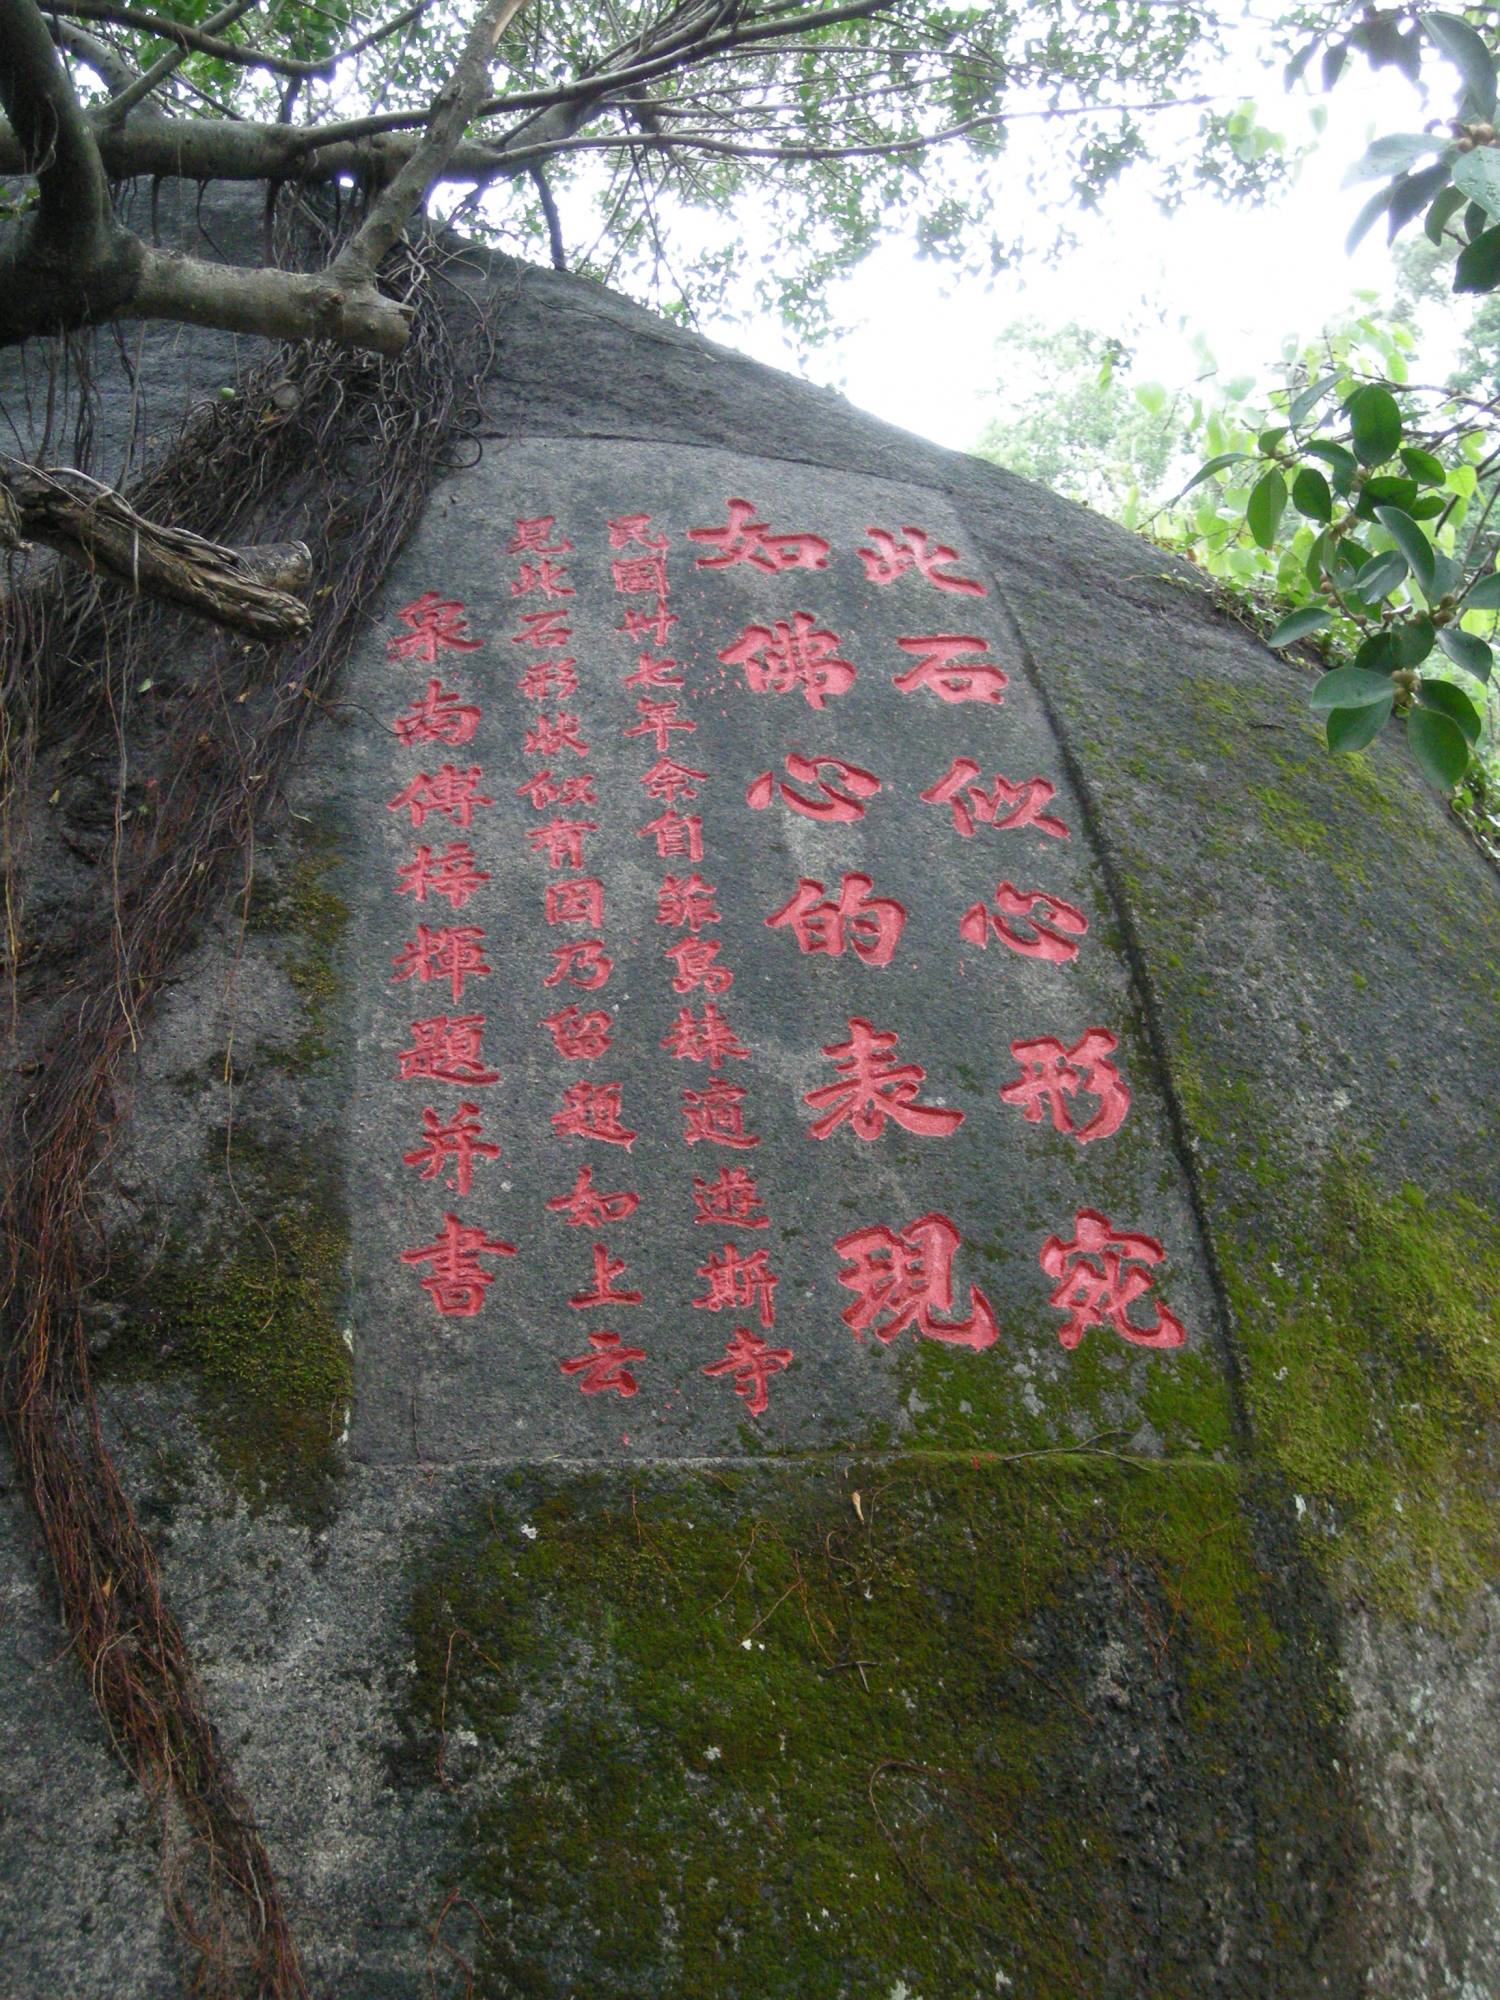 此石似心形宛
如佛心的表現
民國卅七年余自菲島㱕適遊斯寺
見此石形狀似有因乃留題如上云
泉南傅梓輝題并書